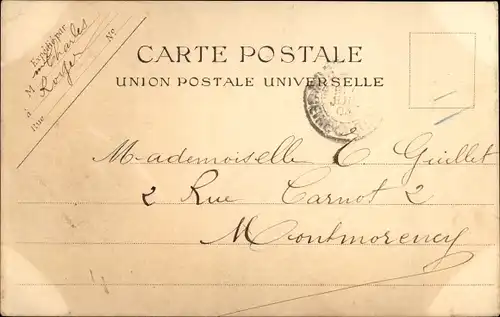 Expédié par
M Charles
Roger
à
Rue
No
CARTE POSTALE
UNION POSTALE UNIVERSELLE
Mademoiselle C Guillet
2 Rue Carnot 2
Montmorency